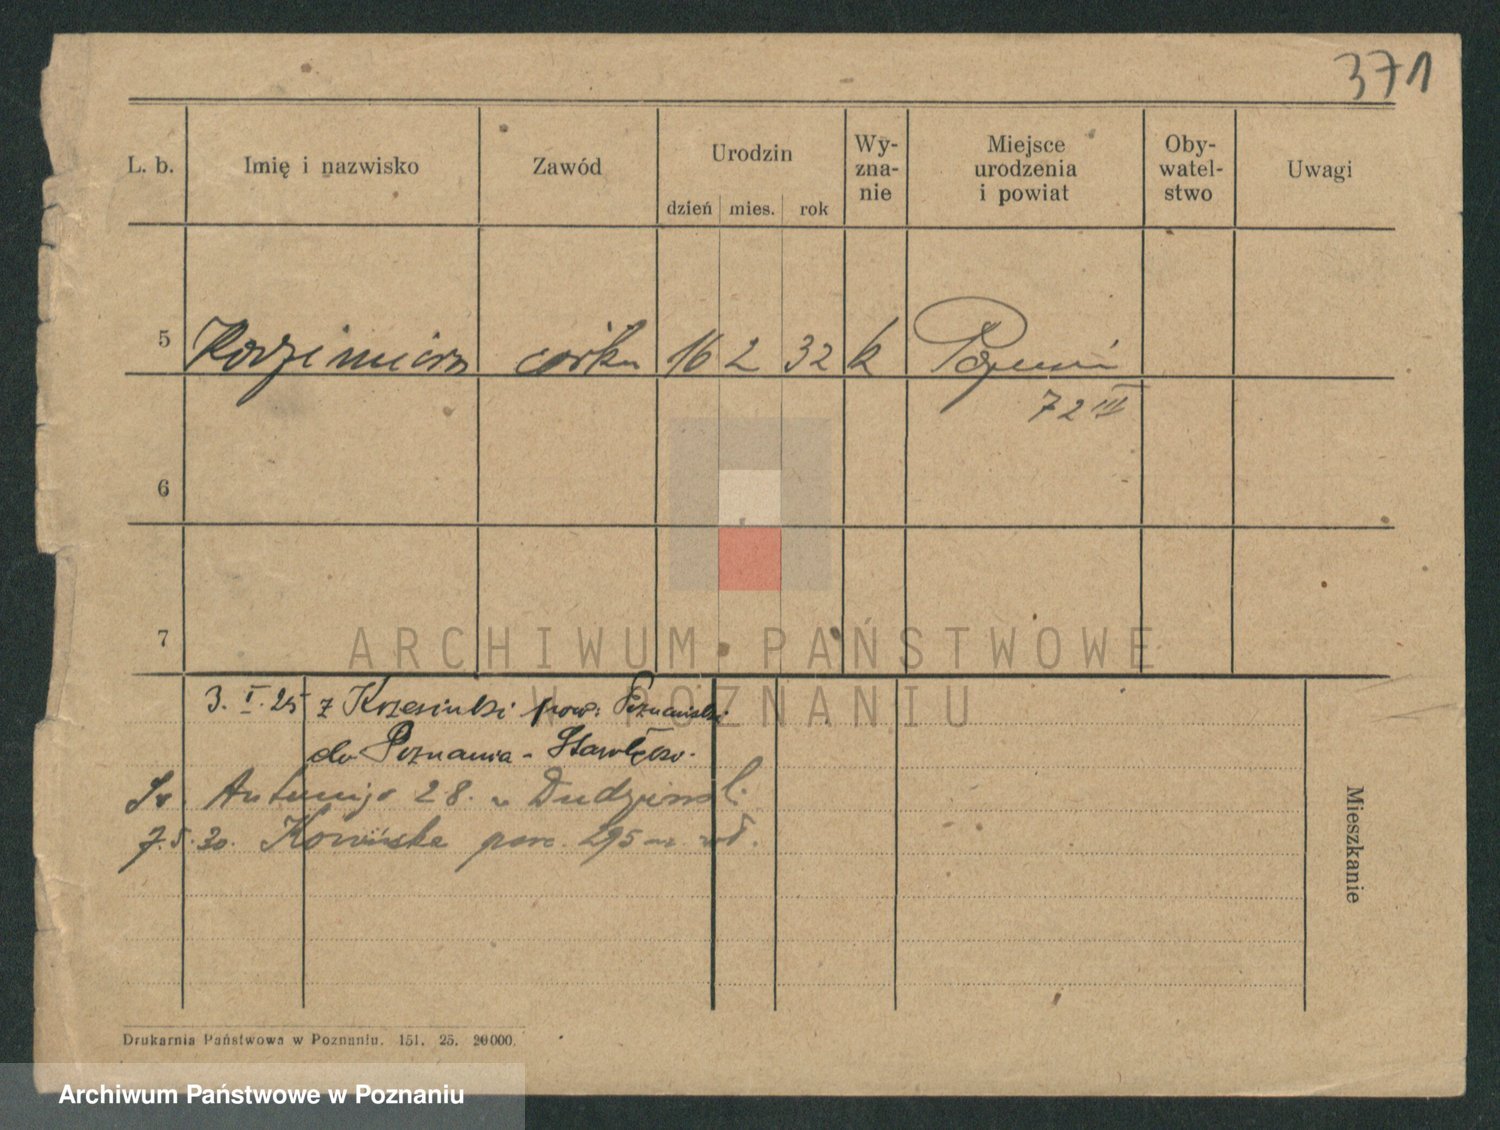 371
L. b. Imię i nazwisko Zawód Urodzin Wy- zna- nie Miejsce urodzenia i powiat Oby- watel- stwo Uwagi
dzień mies. rok
5 Kazimiera córka 16 2 32 k Poznań
72 III
6
7
ARCHIWUM PAŃSTWOWE
W POZNANIU
3. I. 25 z Krzesinki pow. Poznański
do Poznania - Starołęka.
Św. Antoniego 28.
7.5.30. parc. 295
Mieszkanie
Drukarnia Państwowa w Poznaniu. 151. 25. 20000.
Archiwum Państwowe w Poznaniu